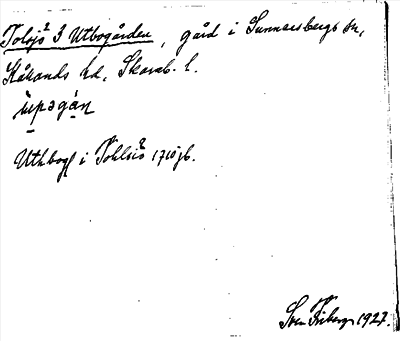 Tolsjö 3 Utbogården, gård i Sunnersbergs sn,
Kållands hd, Skarab. l.
ùpagán
Uthbog i Tohlsiö 1710 jb.
Sven Friberg 1927.